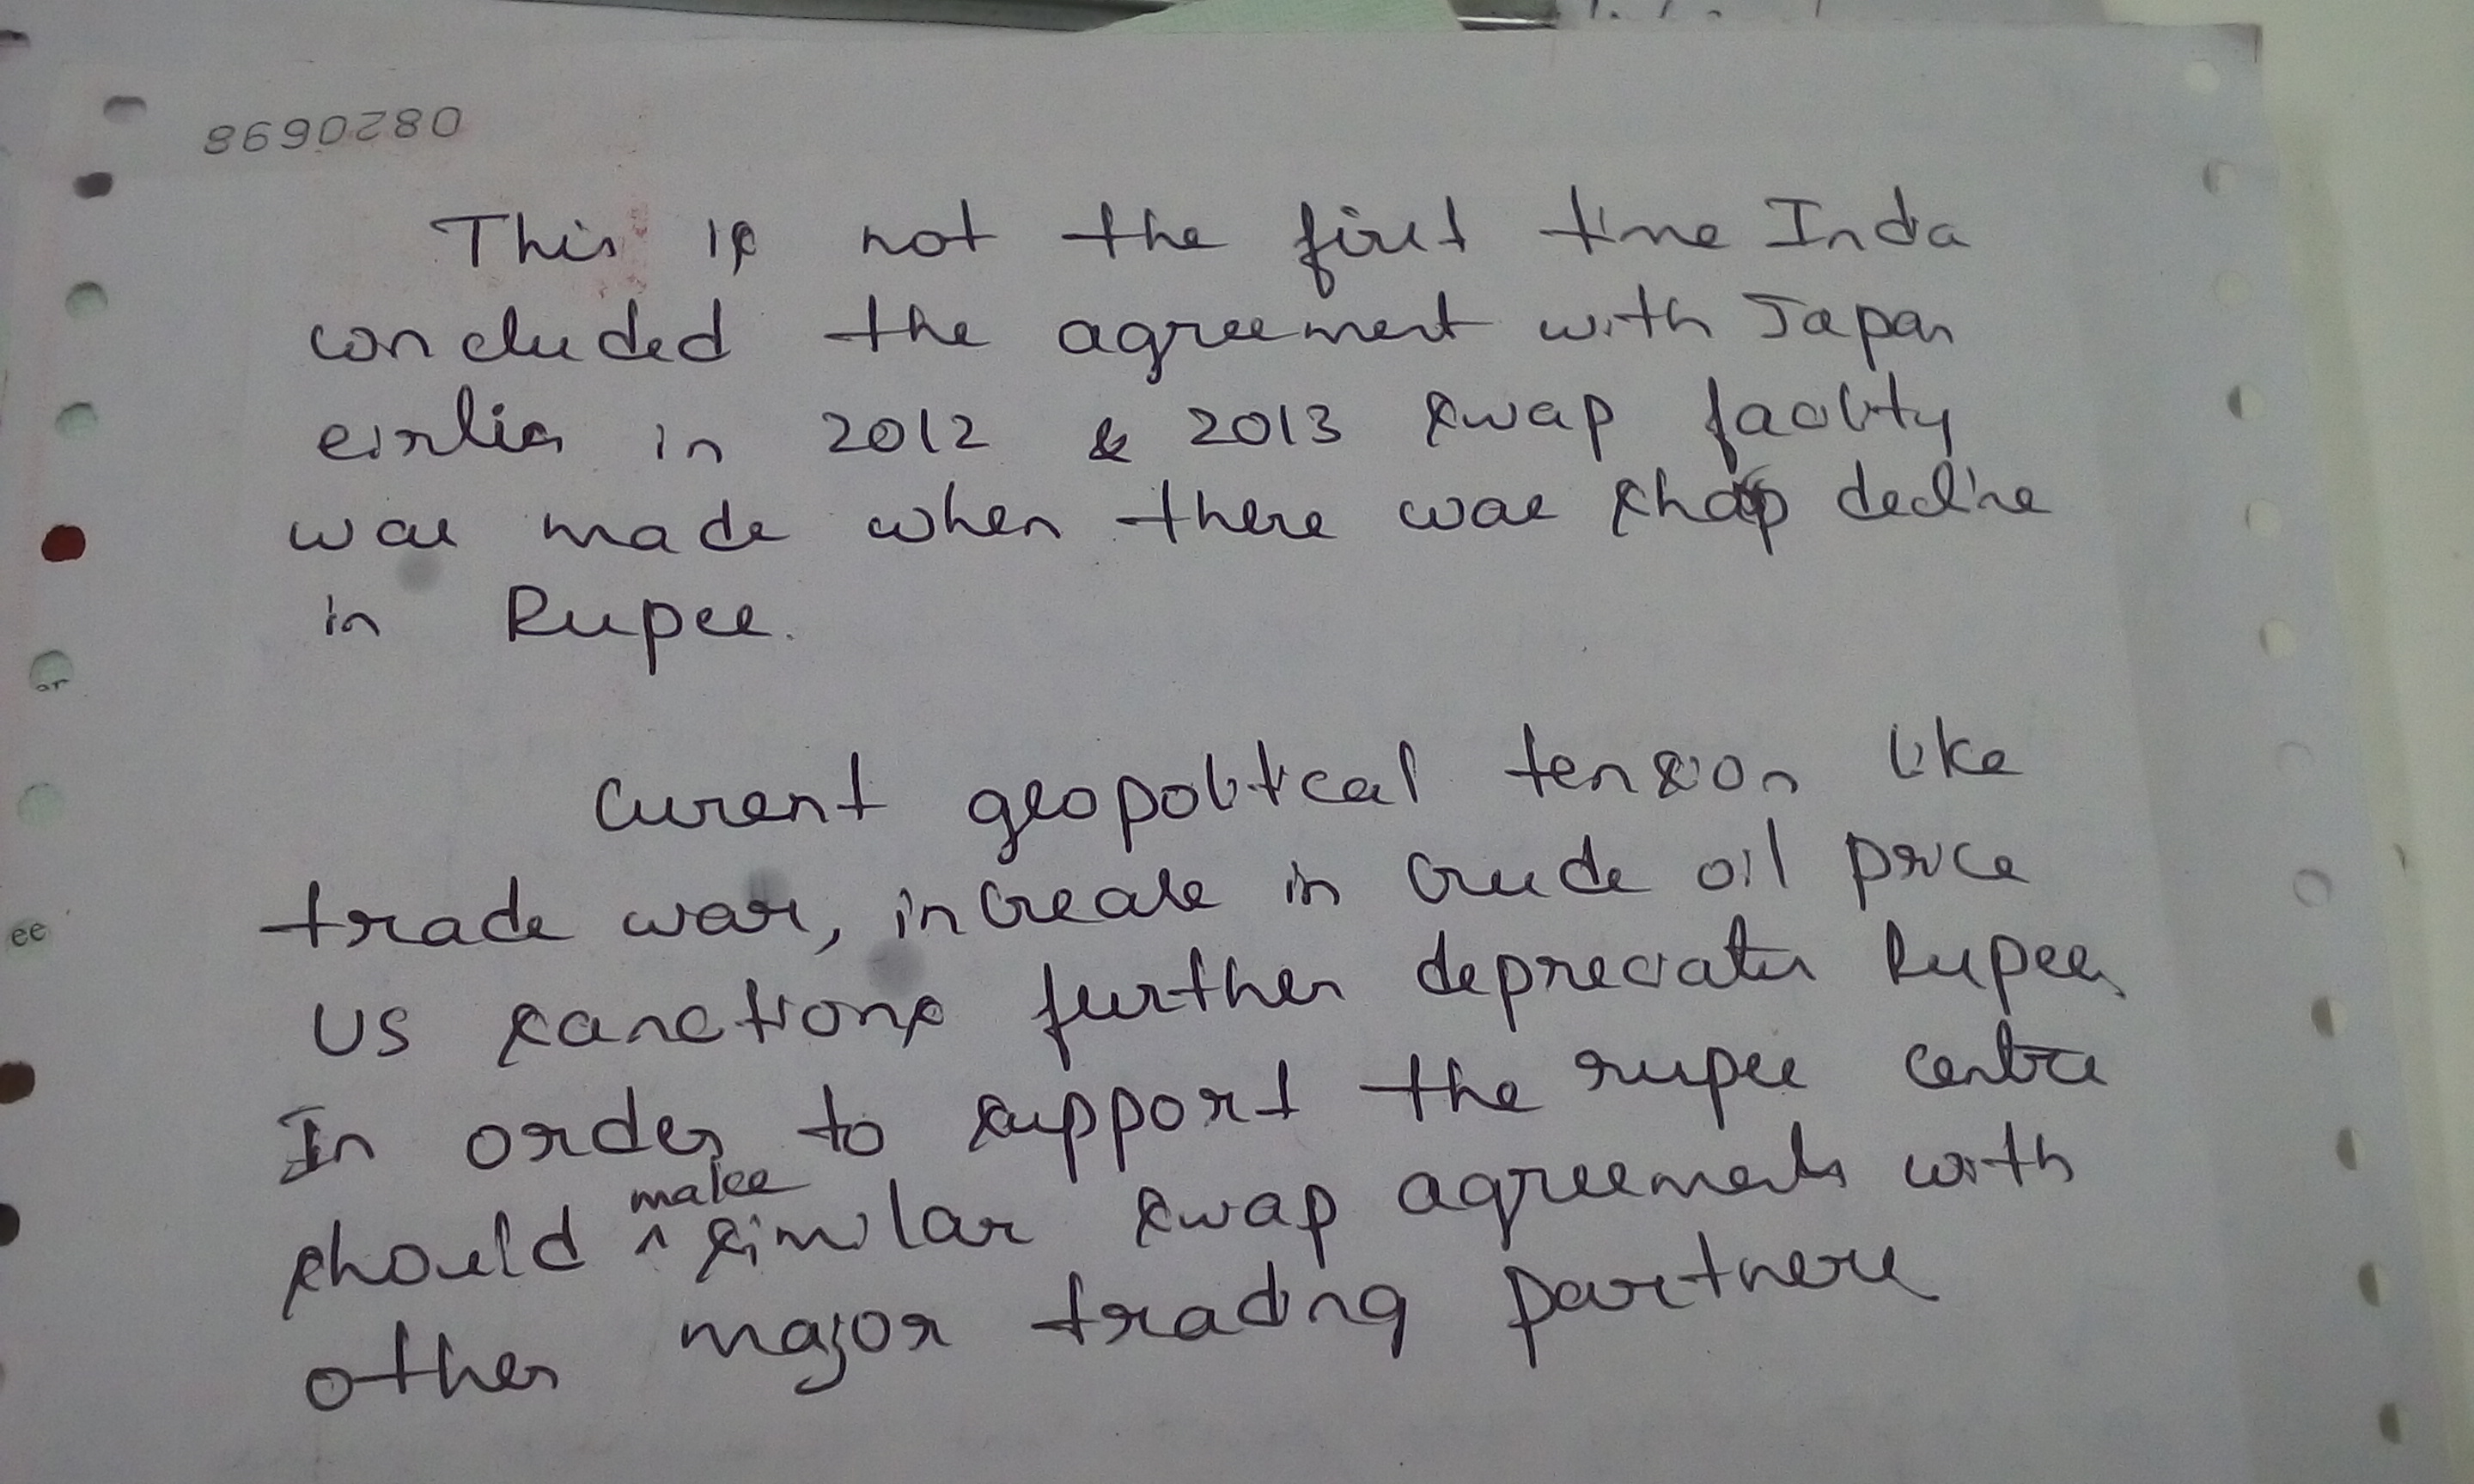 0820698
This is not the first time India
concluded the agreement with Japan
eirlier in 2012 & 2013 swap facility
was made when there was sharp decline
in Rupee.
Curent geopolitical tension like
trade war, increase in crude oil price
US sanctions further depreciates Rupee,
In order to support the rupee centre
make
should ^ similar swap agreements with
other major trading partners
or
ee